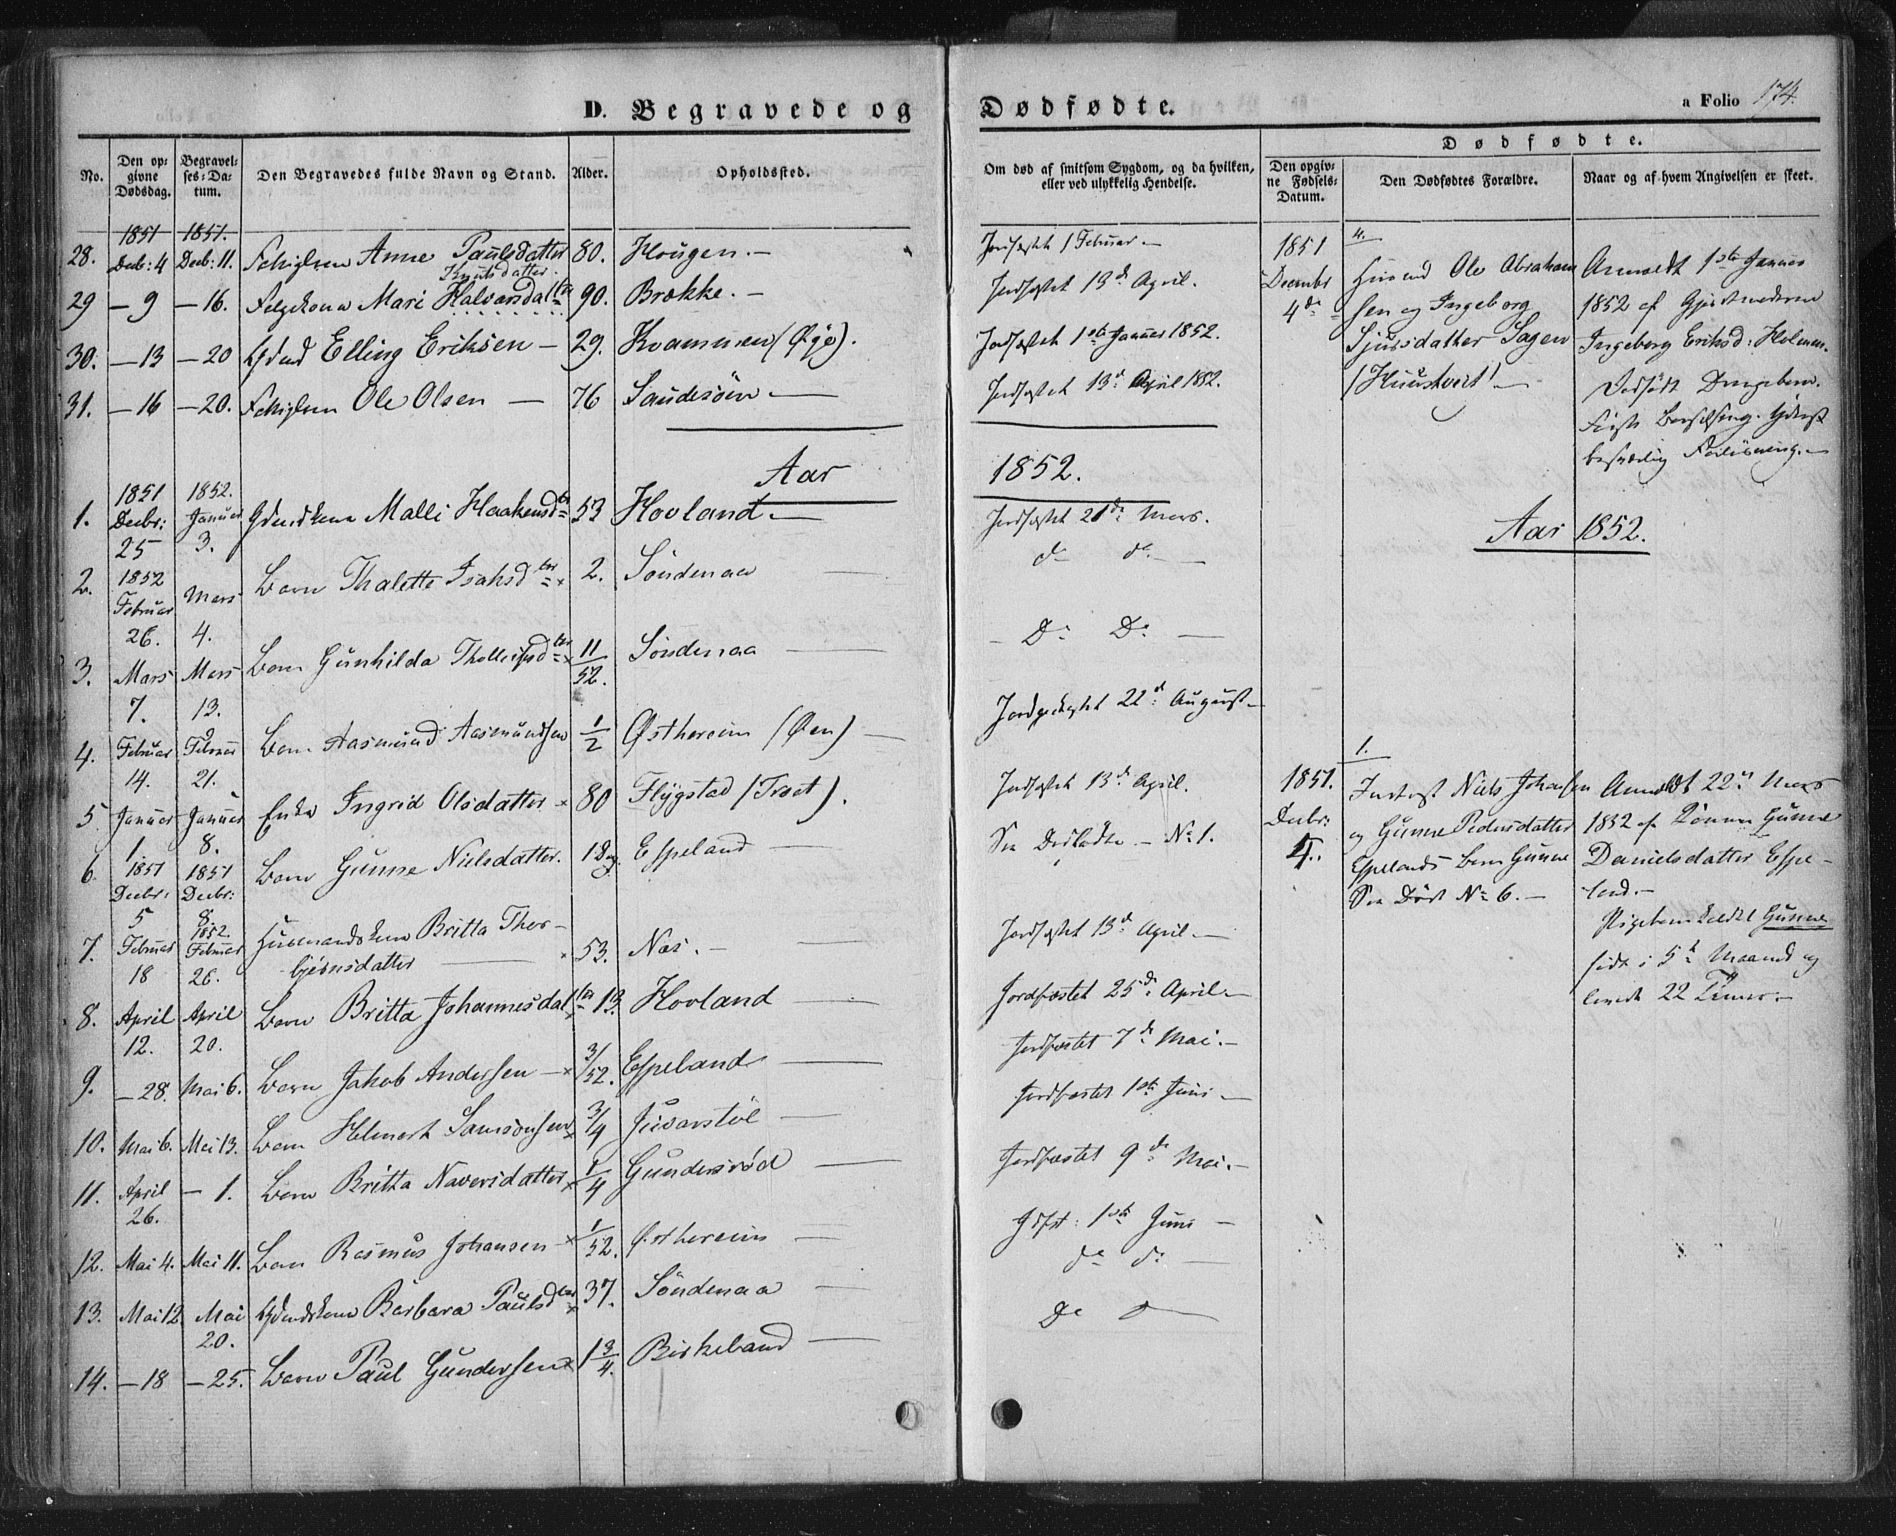 D. Begravede og Dødfødte. a Folio 174.
No. Den opgivne Dødsdag. Begravelses-Datum. Den Begravedes fulde Navn og Stand. Alder. Opholdssted.
Om død af smitsom Sygdom, og da hvilken, eller ved ulykkelig Hendelse.
Dødfødte.
Den opgivne Fødsels-Datum. Den Dødfødtes Forældre. Naar og af hvem Angivelsen er skeet.
1851 1851.
28. Decb: 4 Decb: 11. Anne Paulsdatter 80. Hougen. — Jordfæstet 1 Februar. —
Knutsdatter.
29 — 9 — 16. Mari Halvorsdatter 90. Brække. — Jordfæstet 13de April.
30. — 13 — 20 Elling Eriksen — 29. Kvammen (Øye). Jordfæstet 1ste Januar 1852.
31. — 16 — 20. Ole Olsen — 76 Sandesøen — Jordfæstet 13de April 1852.
Aar 1852.
1851 1852.
1. Decbr: 25 Januar 3. Malli Haakensdtr 53 Hovland — Jordfæstet 21de Mars.
1852
2. Februar 26. Mars 4. Barn Thalette Isaksdtr 2. Søndenaa — do do —
3. Mars 7. Mars 13. Barn Gunhilda Tholleifsdtr 11/52. Søndenaa — Do Do —
4. Februar 14. Februar 21. Barn Aasmund Aasmundsen 1/2 Østhereim (Øen) — 22d August —
5 Januar 1. Januar 8. Enke Ingrid Olsdatter 80 Flygstad (Træet). Jordfæstet 13de April.
1851 1851
6. Decbr: 5 Decbr: 8. Barn Gunne Nielsdatter. 1 Dag. Espeland — See Dødfødte — No 1.
1852.
7. Februar 18 Februar 26. Huusmandskone Britta Thorbjørnsdatter — 53. Næs. — Jordfæstet 13d April. —
8. April 12. April 20. Barn Britta Johannesdatter 13. Hovland — Jordfæstet 25de April. —
9. — 28. Mai 6. Barn Jakob Andersen — 3/52. Espeland — Jordfæstet 7de Mai. —
10. Mai 6. Mai 13. Barn Helmert Samsonsen 3/4 Jivarstøl — Jordfæstet 1ste Juni —
11. April 26. — 1. Barn Britta Naversdatter 1/4 Gundersrød — Jordfæstet 9de Mai. —
12. Mai 4. Mai 11. Barn Rasmus Johansen 1/52. Østhereim — 1ste Juni —
13. Mai 12 Mai 20. Barbara Paulsdtr 37. Søndenaa — do do —
14. — 18 — 25. Barn Paul Gundersen 1 3/4. Birkeland — Do
4.
1851 December 4de
Huusmd Ole Abrahamsen og Ingeborg
Sjursdatter Hagen
(Kuustveit) —
Anmeldt 1ste Januar
1852 af Gjordmoderen
Ingeborg Eriksd: Holmen.
Dødfødt Drengebarn.
Aar 1852.
1.
1851. Decbr: 5.
Niels Johansen
og Gunne Pedersdatter
Espelands Barn Gunne
See Døde No 6. —
Anmeldt 22d Mars
1852 af Konen Gunne
Danielsdatter Espeland. —
Pigebarn kaldet Gunne
født i 5te Maaned og
levede 22 Timer. —